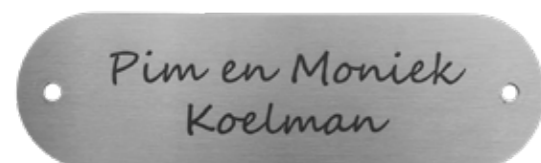 Pim en Moniek
Koelman